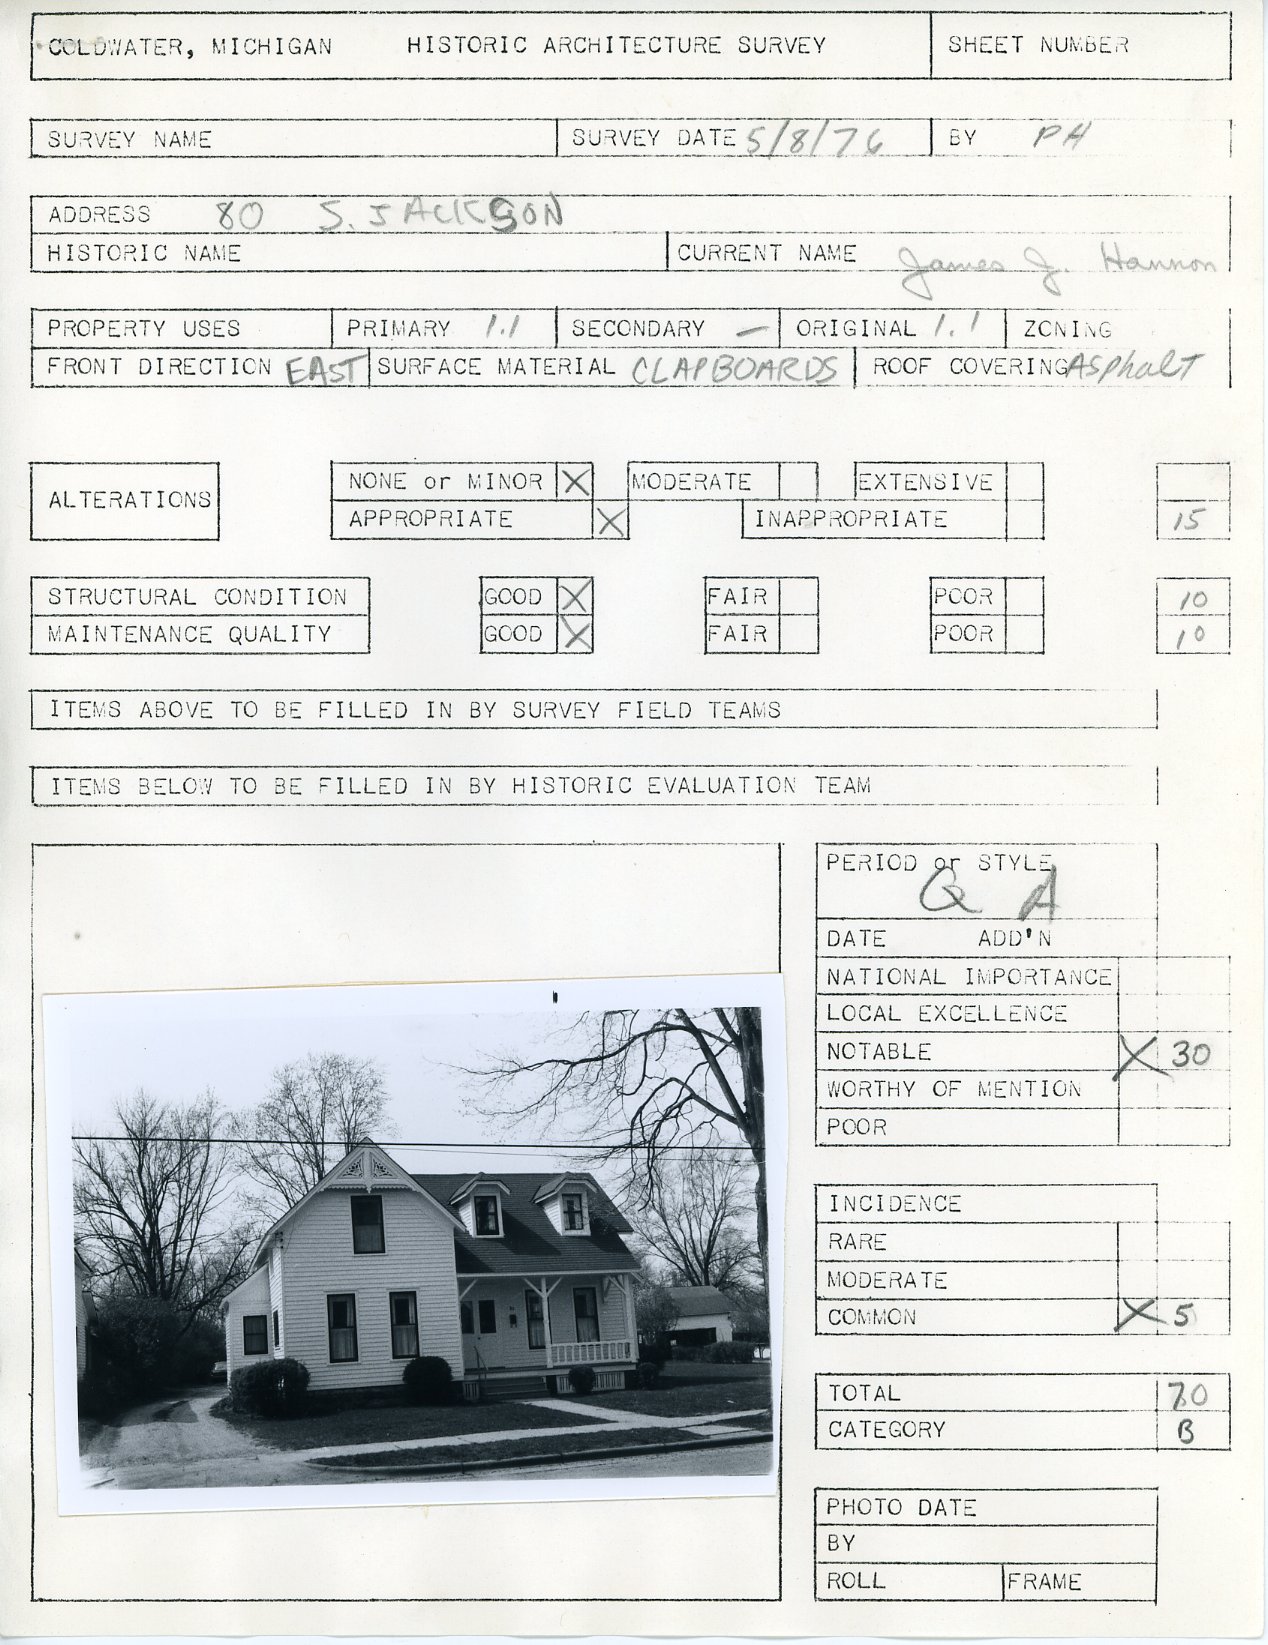 COLDWATER, MICHIGAN HISTORIC ARCHITECTURE SURVEY SHEET NUMBER
SURVEY NAME SURVEY DATE 5/8/76 BY PH
ADDRESS 80 S. JACKSON
HISTORIC NAME CURRENT NAME James J. Hannon
PROPERTY USES PRIMARY 1.1 SECONDARY — ORIGINAL 1.1 ZONING
FRONT DIRECTION EAST SURFACE MATERIAL CLAPBOARDS ROOF COVERING Asphalt
ALTERATIONS
NONE or MINOR X MODERATE EXTENSIVE
APPROPRIATE X INAPPROPRIATE 15
STRUCTURAL CONDITION GOOD X FAIR POOR 10
MAINTENANCE QUALITY GOOD X FAIR POOR 10
ITEMS ABOVE TO BE FILLED IN BY SURVEY FIELD TEAMS
ITEMS BELOW TO BE FILLED IN BY HISTORIC EVALUATION TEAM
PERIOD or STYLE
Q A
DATE ADD'N
NATIONAL IMPORTANCE
LOCAL EXCELLENCE
NOTABLE X 30
WORTHY OF MENTION
POOR
INCIDENCE
RARE
MODERATE
COMMON X 5
TOTAL 70
CATEGORY B
PHOTO DATE
BY
ROLL FRAME